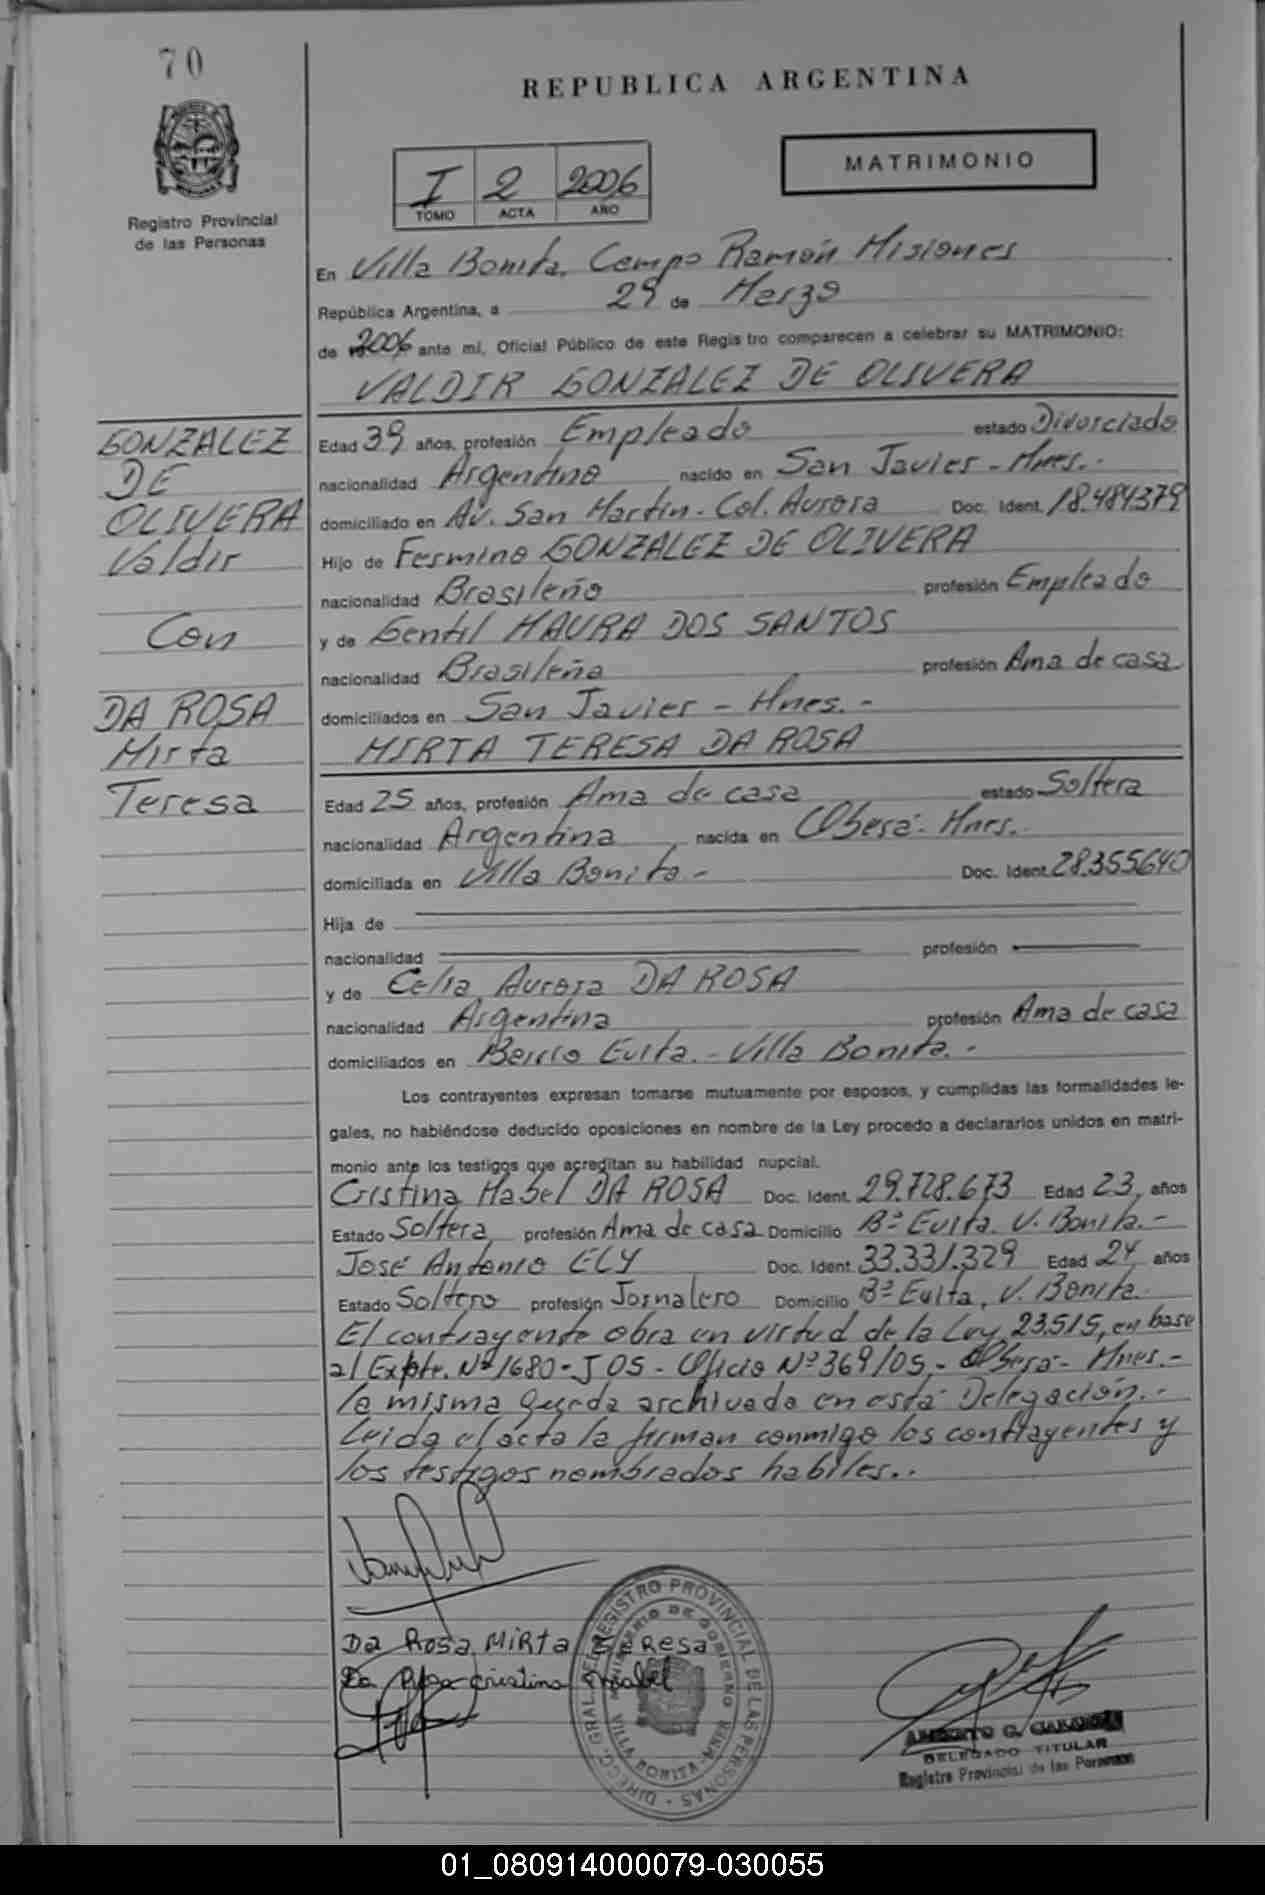 70
REPUBLICA ARGENTINA
MATRIMONIO
I 2 2006
TOMO ACTA AÑO
Registro Provincial
de las Personas
En Villa Bonita, Campo Ramón Misiones
República Argentina, a 29 de Marzo
de 2006 ante mí, Oficial Público de este Registro comparecen a celebrar su MATRIMONIO:
VALDIR GONZALEZ DE OLIVERA
GONZALEZ
DE
OLIVERA
Valdir
Con
DA ROSA
Mirta
Teresa
Edad 39 años, profesión Empleado estado Divorciado
nacionalidad Argentino nacido en San Javier - Mnes.-
domiciliado en Av. San Martin - Col. Aurora Doc. Ident. 18.484379
Hijo de Fermino GONZALEZ DE OLIVERA
nacionalidad Brasileño profesión Empleado
y de Gentil MAURA DOS SANTOS
nacionalidad Brasileña profesión Ama de casa
domiciliados en San Javier - Mnes.-
MIRTA TERESA DA ROSA
Edad 25 años, profesión Ama de casa estado Soltera
nacionalidad Argentina nacida en Oberá - Mnes.
domiciliada en Villa Bonita.- Doc. Ident. 28.355640
Hija de
nacionalidad profesión
y de Celia Aurora DA ROSA
nacionalidad Argentina profesión Ama de casa
domiciliados en Barrio Evita.- Villa Bonita.-
Los contrayentes expresan tomarse mutuamente por esposos, y cumplidas las formalidades le-
gales, no habiéndose deducido oposiciones en nombre de la Ley procedo a declararlos unidos en matri-
monio ante los testigos que acreditan su habilidad nupcial.
Cristina Mabel DA ROSA Doc. Ident. 29.728.673 Edad 23, años
Estado Soltera profesión Ama de casa Domicilio Bº Evita. V. Bonita.-
José Antonio ELY Doc. Ident. 33.331.329 Edad 24, años
Estado Soltero profesión Jornalero Domicilio Bº Evita, V. Bonita.
El contrayente obra en virtud de la Ley 23.515, en base
al Expte. Nº 1680 - J 05 - Oficio Nº 369/05,- Oberá - Mnes.-
la misma queda archivada en esta Delegación.-
Leida el acta la firman conmigo los contrayentes y
los testigos nombrados habiles..
Da Rosa Mirta Teresa
Da Rosa Cristina Mabel
DIRECC. GRAL. DEL REGISTRO PROVINCIAL DE LAS PERSONAS
MINISTERIO DE GOBIERNO
VILLA BONITA
DELEGADO TITULAR
Registro Provincial de las Personas
01_080914000079-030055